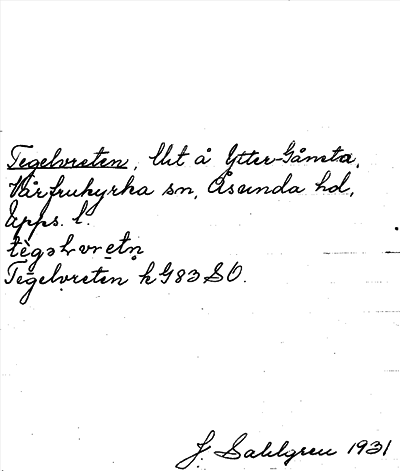 Tegelvreten, lht å Ytter-Gånsta,
Vårfrukyrka sn, Åsunda hd,
Upps. l.
tègəɫvre̠tn̥
Tegelvreten k G83 SO.
J. Sahlgren 1931